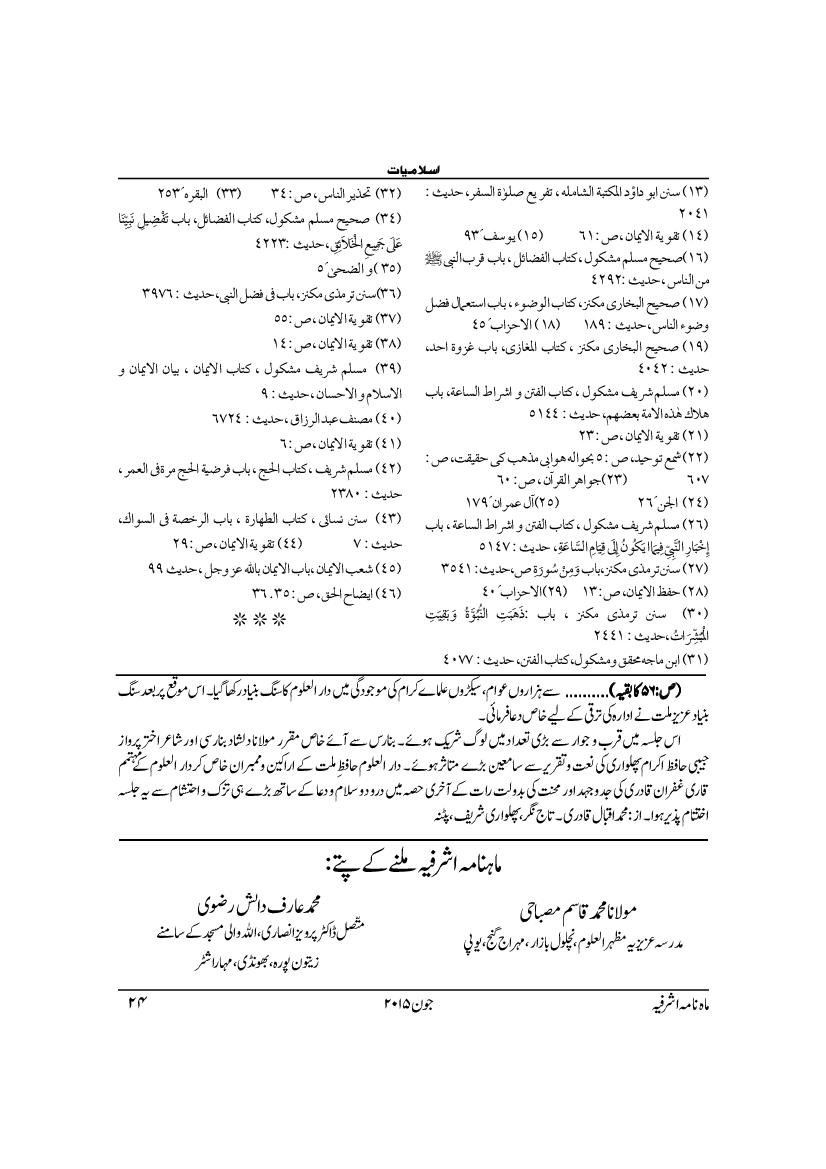 اسلامیات
(۱۳) سنن ابو داؤد المکتبۃ الشاملہ، تفریع صلوٰۃ السفر، حدیث :
۲۰۴۱
(۱۴) تقویۃ الایمان، ص: ۶۱ (۱۵) یوسف ۹۳
(۱۶) صحیح مسلم مشکول، کتاب الفضائل، باب قرب النبی ﷺ
من الناس، حدیث :۴۲۹۲
(۱۷) صحیح البخاری مکنز، کتاب الوضوء، باب استعمال فضل
وضوء الناس، حدیث : ۱۸۹ (۱۸) الاحزاب ۴۵
(۱۹) صحیح البخاری مکنز ، کتاب المغازی، باب غزوۃ احد،
حدیث : ۴۰۴۲
(۲۰) مسلم شریف مشکول، کتاب الفتن و اشراط الساعۃ، باب
ھلاک ھٰذہ الامۃ بعضھم، حدیث : ۵۱۴۴
(۲۱) تقویۃ الایمان، ص: ۲۳
(۲۲) شمع توحید، ص : ۵ بحوالہ ھوابی مذھب کی حقیقت، ص :
۶۰۷ (۲۳) جواھر القرآن، ص : ۶۰
(۲۴) الجن ۲۶ (۲۵) آل عمران ۱۷۹
(۲۶) مسلم شریف مشکول ، کتاب الفتن و اشراط الساعۃ ، باب
إِخْبَارِ النَّبِيِّ فِيمَا يَكُونُ إِلَى قِيَامِ السَّاعَةِ، حدیث : ۵۱۴۷
(۲۷) سنن ترمذی مکنز، باب وَمِنْ سُورَةِ ص، حدیث : ۳۵۴۱
(۲۸) حفظ الایمان، ص: ۱۳ (۲۹) الاحزاب ۴۰
(۳۰) سنن ترمذی مکنز ، باب :ذَهَبَتِ النُّبُوَّةُ وَبَقِيَتِ
الْمُبَشِّرَاتُ، حدیث : ۲۴۴۱
(۳۱) ابن ماجہ محقق و مشکول، کتاب الفتن، حدیث : ۴۰۷۷
(۳۲) تحذیر الناس، ص: ۳۴ (۳۳) البقرہ ۲۵۳
(۳۴) صحیح مسلم مشکول، کتاب الفضائل، باب تَفْضِيلِ نَبِيِّنَا
عَلَى جَمِيعِ الْخَلَائِقِ، حدیث :۴۲۲۳
(۳۵) و الضحیٰ ۵
(۳۶) سنن ترمذی مکنز، باب فی فضل النبی، حدیث : ۳۹۷۶
(۳۷) تقویۃ الایمان، ص: ۵۵
(۳۸) تقویۃ الایمان، ص: ۱۴
(۳۹) مسلم شریف مشکول ، کتاب الایمان ، بیان الایمان و
الاسلام و الاحسان، حدیث : ۹
(۴۰) مصنف عبد الرزاق، حدیث : ۶۷۲۴
(۴۱) تقویۃ الایمان، ص: ۶
(۴۲) مسلم شریف، کتاب الحج، باب فرضیۃ الحج مرۃ فی العمر،
حدیث : ۲۳۸۰
(۴۳) سنن نسائی ، کتاب الطھارۃ ، باب الرخصۃ فی السواک،
حدیث : ۷ (۴۴) تقویۃ الایمان، ص: ۲۹
(۴۵) شعب الایمان، باب الایمان باللہ عز و جل، حدیث ۹۹
(۴۶) ایضاح الحق، ص: ۳۵۔۳۶
❊❊❊
(ص:۵۶ کا بقیہ).......... سے ہزاروں عوام، سیکڑوں علماے کرام کی موجودگی میں دار العلوم کا سنگ بنیاد رکھا گیا۔ اس موقع پر بعد سنگ
بنیاد عزیز ملت نے ادارہ کی ترقی کے لیے خاص دعا فرمائی۔
اس جلسہ میں قرب و جوار سے بڑی تعداد میں لوگ شریک ہوئے۔ بنارس سے آئے خاص مقرر مولانا دلشاد بنارسی اور شاعر اختر پرواز
حبیبی حافظ اکرام پھلواری کی نعت و تقریر سے سامعین بڑے متاثر ہوئے۔ دار العلوم حافظِ ملت کے اراکین و ممبران خاص کر دار العلوم کے مہتمم
قاری غفران قادری کی جد و جہد اور محنت کی بدولت رات کے آخری حصہ میں درود و سلام و دعا کے ساتھ بڑے ہی تزک و احتشام سے یہ جلسہ
اختتام پذیر ہوا۔ از: محمد اقبال قادری۔ تاج نگر، پھلواری شریف، پٹنہ
ماہنامہ اشرفیہ ملنے کے پتے:
مولانا محمد قاسم مصباحی
مدرسہ عزیزیہ مظہر العلوم، نچلول بازار، مہراج گنج، یوپی
محمد عارف دانش رضوی
متّصل ڈاکٹر پرویز انصاری، اللہ والی مسجد کے سامنے
زیتون پورہ، بھونڈی، مہاراشٹر
ماہ نامہ اشرفیہ
جون ۲۰۱۵
۲۴